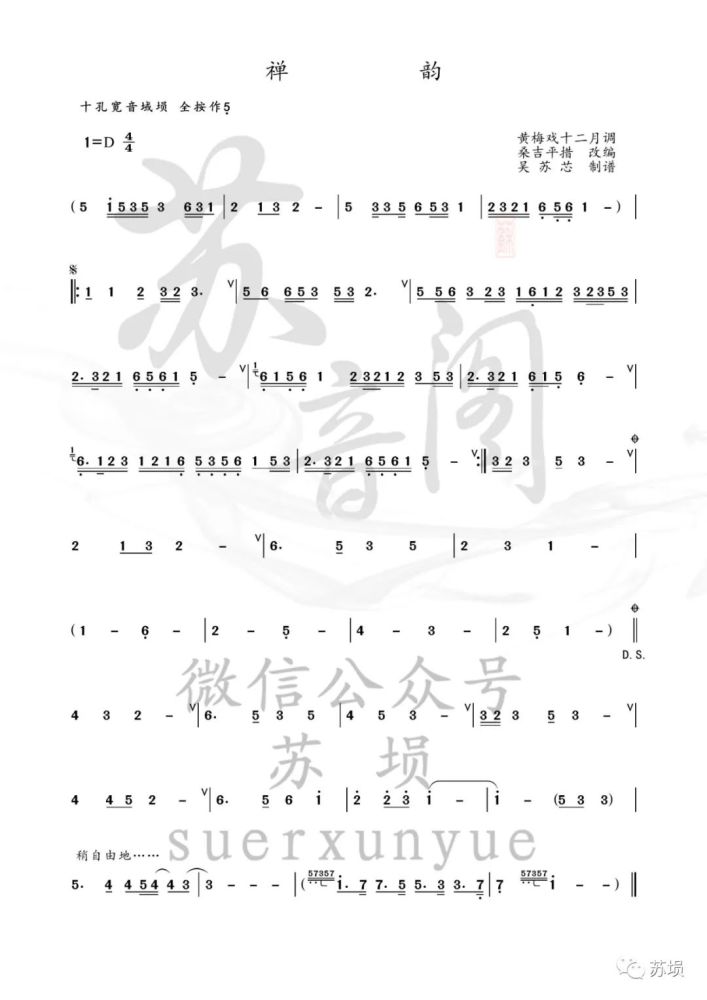 禅 韵
十孔宽音域埙 全按作5̣
1=D 4/4
黄梅戏十二月调
桑吉平措 改编
吴苏芯 制谱
( 5 i̇535 3 631 | 2 13 2 - | 5 335 653 1 | 2321 6̣5̣6̣ 1 - ) |
𝄋 ‖: 1 1 2 323. ∨| 56 653 53 2. ∨| 5 56 323 16̣12 32353 |
2. 321 6̣5̣6̣1 5̣ - ∨| 6̣15̣6̣ 1 23212 353 | 2. 321 6̣15̣ 6̣ - ∨|
6̣. 123 1216̣ 5̣35̣6̣ 153 | 2. 321 6̣5̣6̣1 5̣ - :‖ 323 53 - ∨|
2 13 2 - ∨| 6. 53 5 | 2 - 5 - | 1 - - - |
( 1 - 6̣ - | 2 - 5̣ - | 4 - 3 - | 2 5̣ 1 - ) ‖
D.S.
4 3 2 - ∨| 6. 5 3 5 | 4 5 3 - ∨| 323 5 3 - ∨|
4 45 2 - ∨| 6. 56 i̇ | 2̇ 2̇3̇ i̇ - | i̇ - (53 3) |
稍自由地……
5. 4 454 43 | 3 - - - | (57357 i̇. 7 7. 5 5. 3 3. 7̣ | 57357 i̇ - - - ) ‖
苏音阁
微信公众号
苏 埙
suerxunyue
苏埙